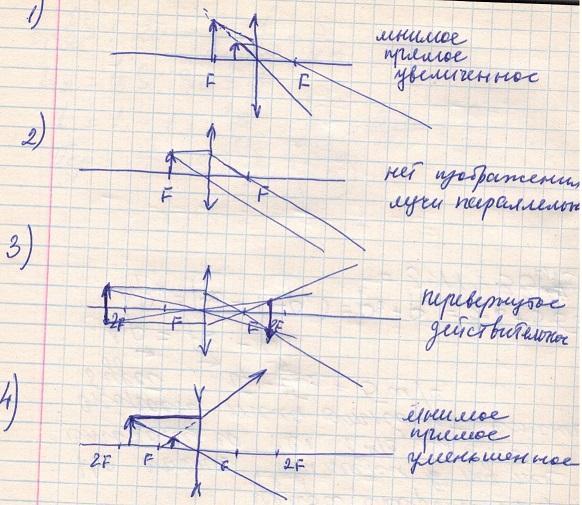 1)
мнимое
прямое
увеличенное
F F
2)
нет изображения
лучи параллельн
F F
3)
перевернутое
действительное
2F F F 2F
4)
мнимое
прямое
уменьшенное
2F F F 2F